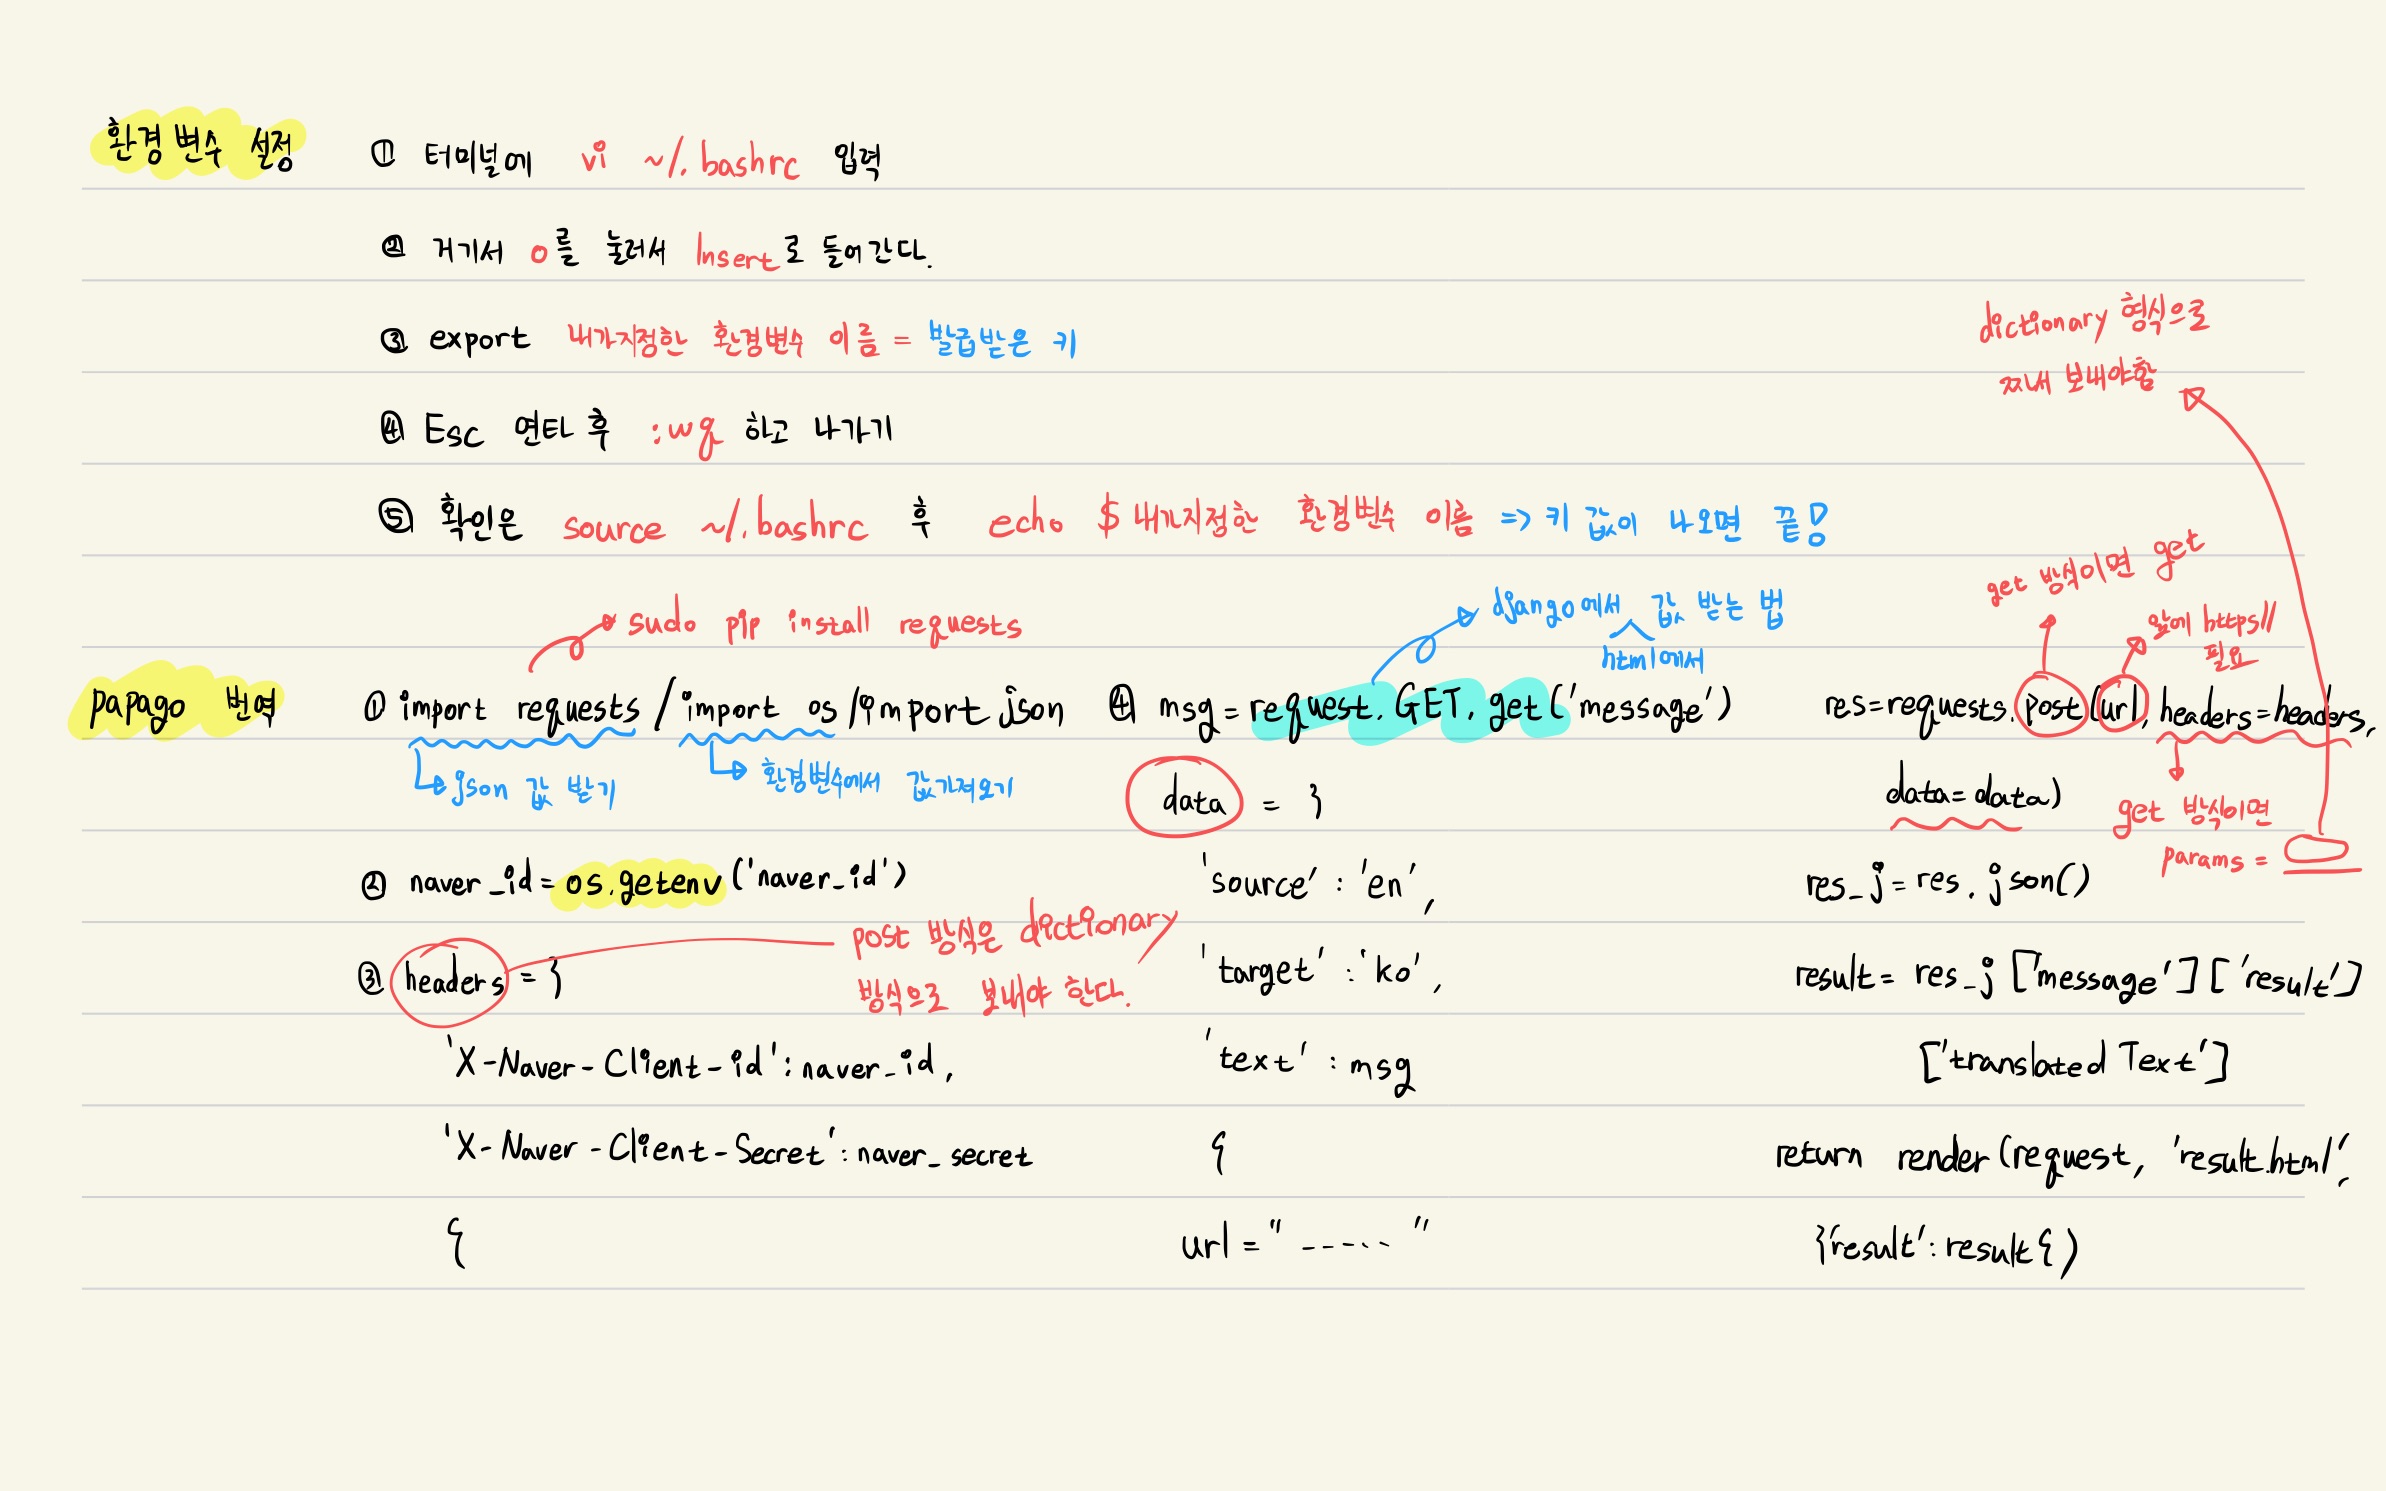 환경변수 설정
① 터미널에 vi ~/.bashrc 입력
② 거기서 o를 눌러서 Insert로 들어간다.
③ export 내가지정한 환경변수 이름 = 발급받은 키
④ Esc 연타 후 :wq 하고 나가기
⑤ 확인은 source ~/.bashrc 후 echo $내가지정한 환경변수 이름 => 키 값이 나오면 끝!
papago 번역
sudo pip install requests
① import requests / import os / import json
json 값 받기
환경변수에서 값가져오기
② naver_id = os.getenv('naver_id')
③ headers = }
post 방식은 dictionary
방식으로 보내야 한다.
'X-Naver-Client-id': naver_id,
'X-Naver-Client-Secret': naver_secret
{
django에서 값 받는 법
html에서
④ msg = request.GET.get('message')
data = }
'source' : 'en',
'target' : 'ko',
'text' : msg
{
url = " ----- "
dictionary 형식으로
짜내 보내야함
get 방식이면 get
앞에 https//
필요
res=requests.post(url, headers=headers,
data=data)
get 방식이면
params =
res_j = res.json()
result = res_j['message']['result']
['translated Text']
return render(request, 'result.html',
}'result': result{)